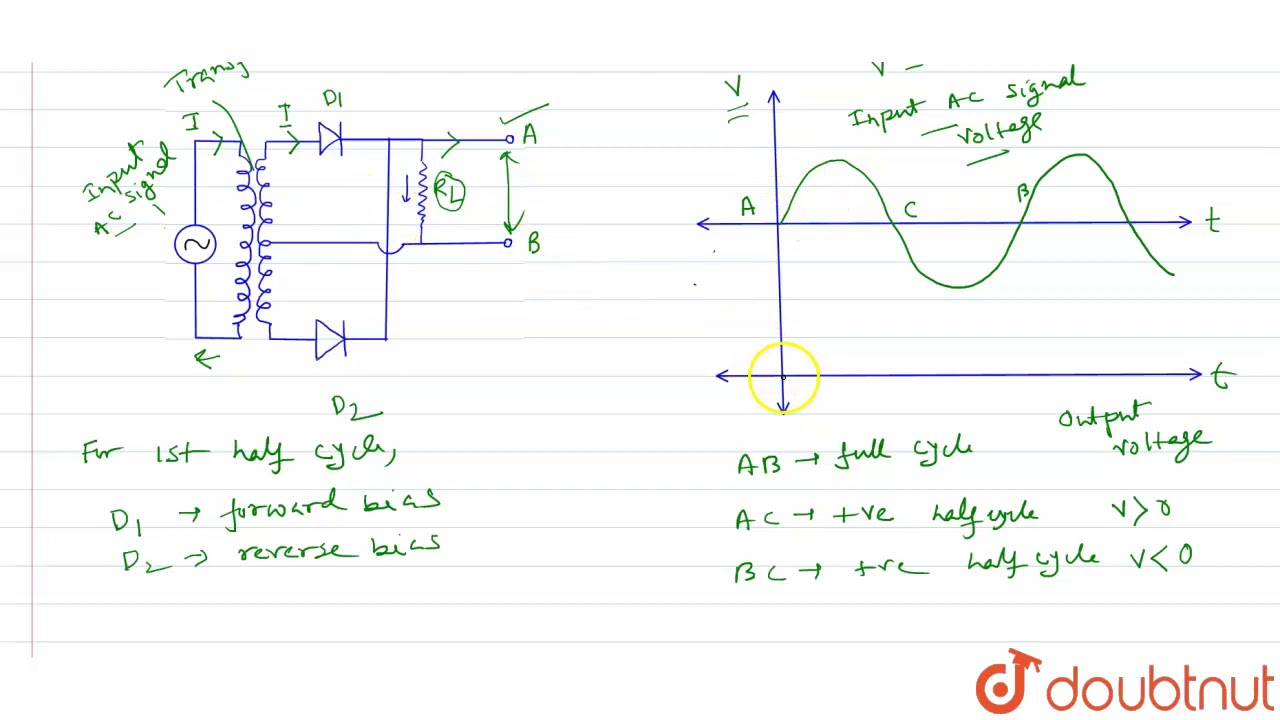 Transf
I
I
D1
A
Input
AC signal
RL
B
D2
For 1st half cycle,
D1 → forward bias
D2 → reverse bias
V
V –
Input AC signal
voltage
A
C
B
t
t
Output
voltage
AB → full cycle
AC → +ve half cycle V > 0
BC → +ve half cycle V < 0
doubtnut